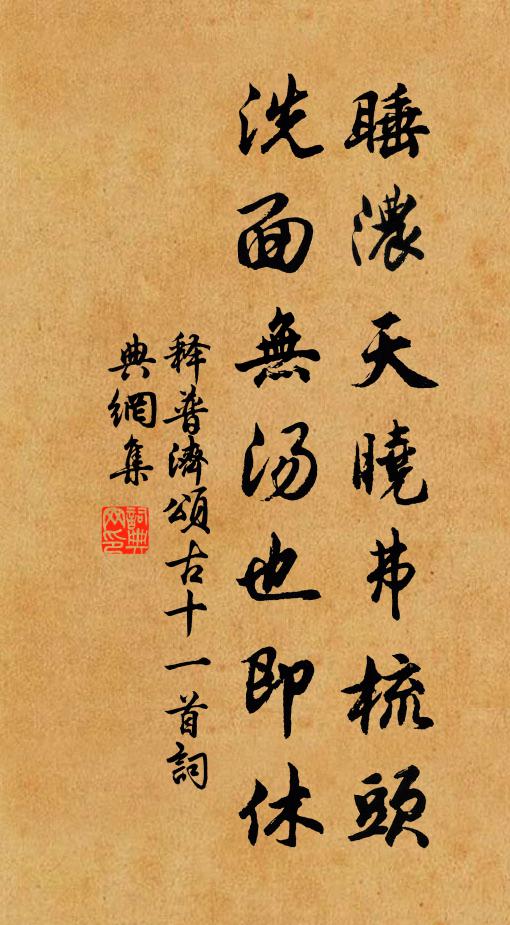 睡濃天曉弗梳頭
洗面無湯也即休
释普濟頌古十一首詞
典網集
詞典網印